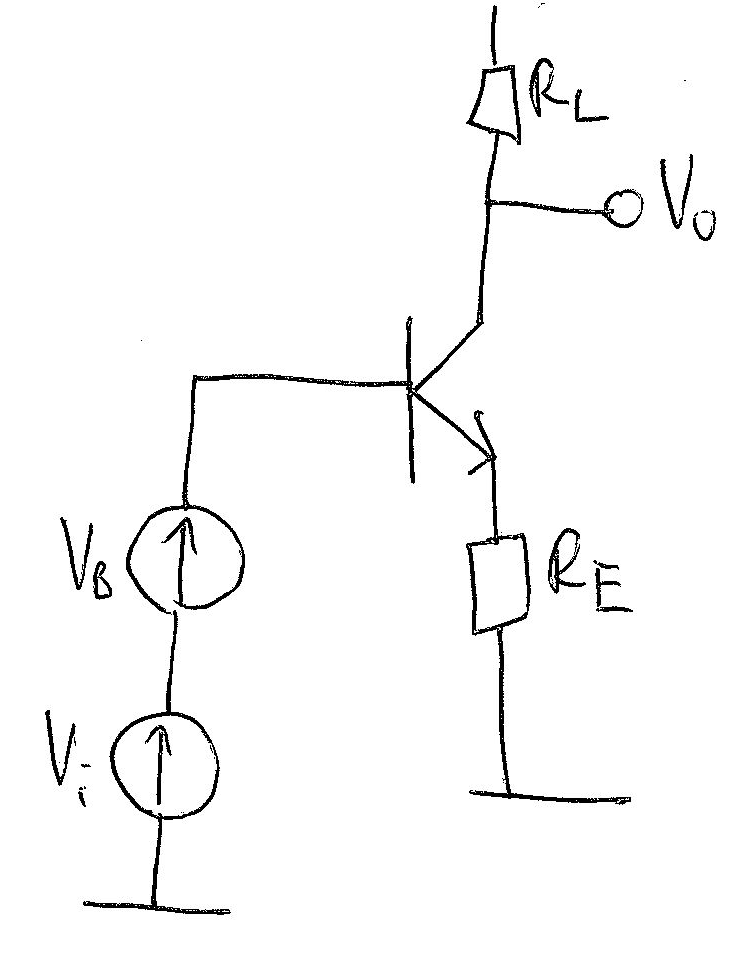 R_L
V_o
V_B
R_E
V_i